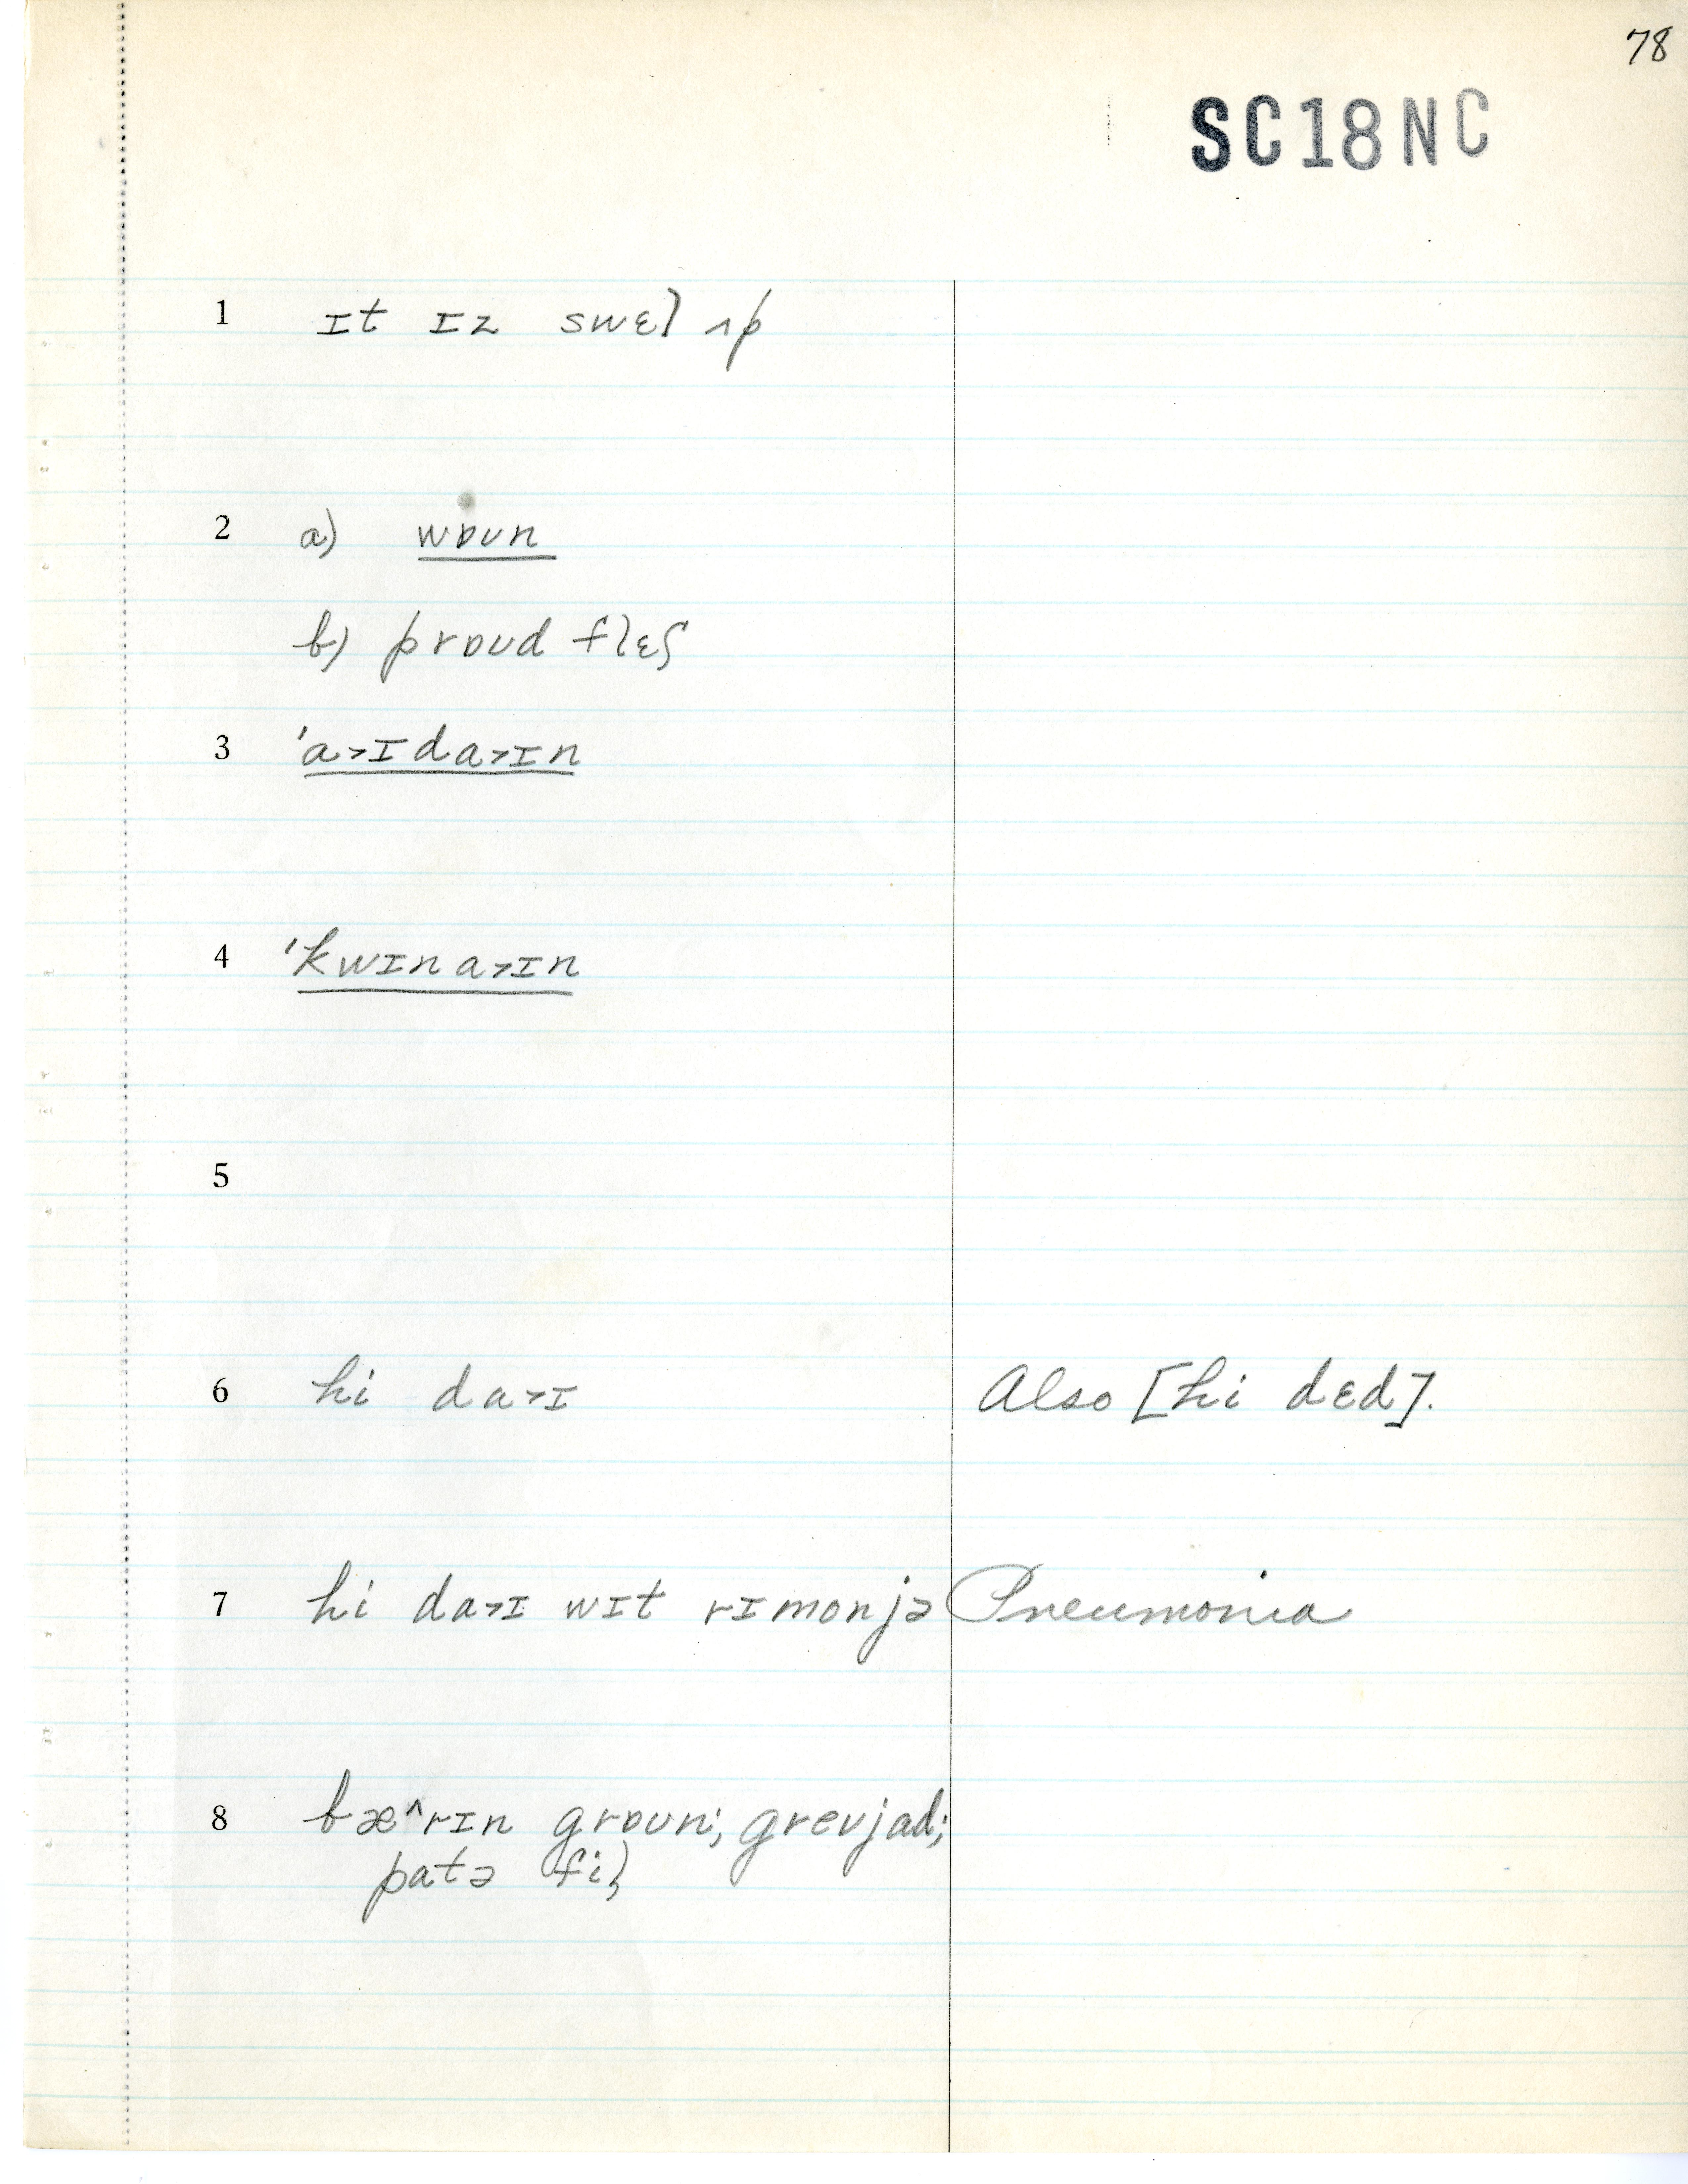 78
SC18NC
1 ɪt ɪz swɛl ʌp
2 a) wɒʊn
b) prɒʊd flɛʃ
3 'a>ɪda>ɪn
4 'kwɪna>ɪn
5
6 hi da>ɪ Also [hi dɛd].
7 hi da>ɪ wɪt rɪmonjə Pneumonia
8 bæ^rɪn grɒʊn; grevjad;
patə fil